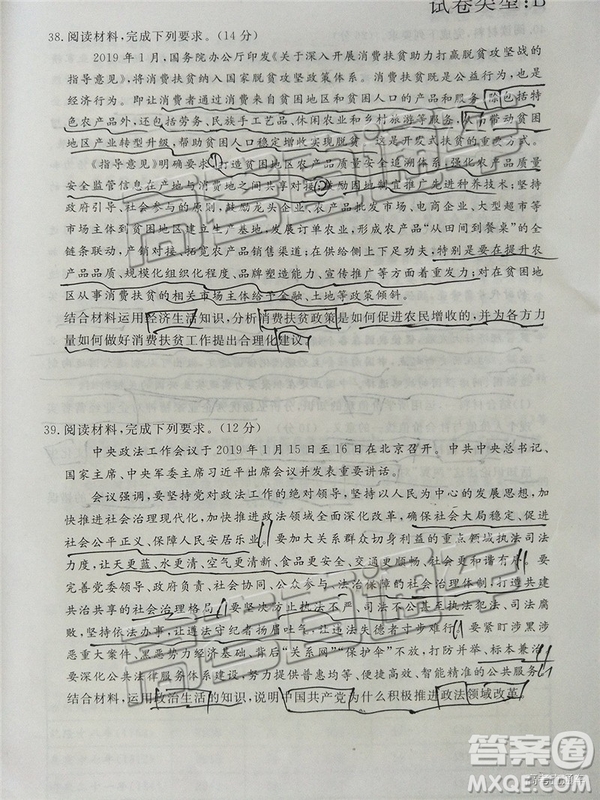 试卷类型:B
38.阅读材料,完成下列要求。(14分)
2019年1月,国务院办公厅印发《关于深入开展消费扶贫助力打赢脱贫攻坚战的
指导意见》,将消费扶贫纳入国家脱贫攻坚政策体系。消费扶贫既是公益行为,也是
经济行为。即让消费者通过消费来自贫困地区和贫困人口的产品和服务,除包括特
色农产品外,还包括劳务、民族手工艺品、休闲农业和乡村旅游等服务,从而带动贫困
地区产业转型升级,帮助贫困人口稳定增收实现脱贫。这是开发式扶贫的重要方式。
《指导意见》明确要求,打造贫困地区农产品质量安全追溯体系;强化农产品质量
安全监管信息在产地与消费地之间共享对接;鼓励因地制宜推广先进种养技术;坚持
政府引导、社会参与的原则,鼓励龙头企业、农产品批发市场、电商企业、大型超市等
市场主体到贫困地区建立生产基地,发展订单农业,形成农产品“从田间到餐桌”的全
链条联动,打通农产品销售渠道;在供给侧上下足功夫,特别是要在提升农
产品品质、规模化组织化程度、品牌塑造能力、宣传推广等方面着重发力;对在贫困地
区从事消费扶贫的相关市场主体给予金融、土地等政策倾斜。
结合材料运用经济生活知识,分析消费扶贫政策是如何促进农民增收的,并为各方力
量如何做好消费扶贫工作提出合理化建议。
39.阅读材料,完成下列要求。(12分)
中央政法工作会议于2019年1月15日至16日在北京召开。中共中央总书记、
国家主席、中央军委主席习近平出席会议并发表重要讲话。
会议强调,要坚持党对政法工作的绝对领导,坚持以人民为中心的发展思想,加
快推进社会治理现代化,加快推进政法领域全面深化改革,确保社会大局稳定、促进
社会公平正义、保障人民安居乐业。要加大关系群众切身利益的重点领域执法司法
力度,让天更蓝、水更清、空气更清新、食品更安全、交通更顺畅、社会更和谐有序。要
完善党委领导、政府负责、社会协同、公众参与、法治保障的社会治理体制,打造共建
共治共享的社会治理格局。要坚决防止执法不严、司法不公甚至执法犯法、司法腐
败,坚持依法办事,让遵法守纪者扬眉吐气,让违法失德者寸步难行。要紧盯涉黑涉
恶重大案件、黑恶势力经济基础、背后“关系网”“保护伞”不放,在打防并举、标本兼治
要深化公共法律服务体系建设,努力提供普惠均等、便捷高效、智能精准的公共服务。
结合材料,运用政治生活的知识,说明中国共产党为什么积极推进政法领域改革。
高考直通车
答案圈
MXQE.COM